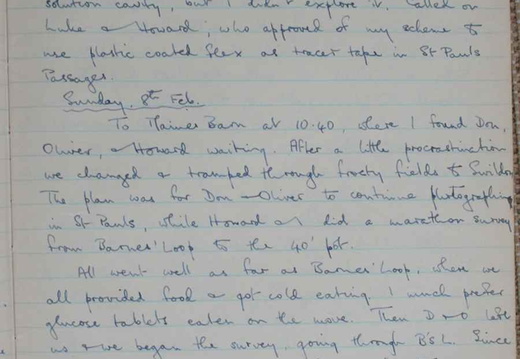 solution cavity, but I didn't explore it. Called on
Luke & Howard, who approved of my scheme to
use plastic coated flex as tracer tape in St Pauls
Passages.
Sunday. 8th Feb.
To Maines Barn at 10.40, where I found Don,
Oliver, & Howard waiting. After a little procrastination
we changed & tramped through frosty fields to Swildon
The plan was for Don & Oliver to continue photographing
in St Pauls, while Howard & I did a marathon survey
from Barnes' Loop to the 40' pot.
All went well as far as Barnes' Loop, where we
all provided food & got cold eating. I much prefer
glucose tablets eaten on the move. Then D & O left
us & we began the survey, going through B's L. Since